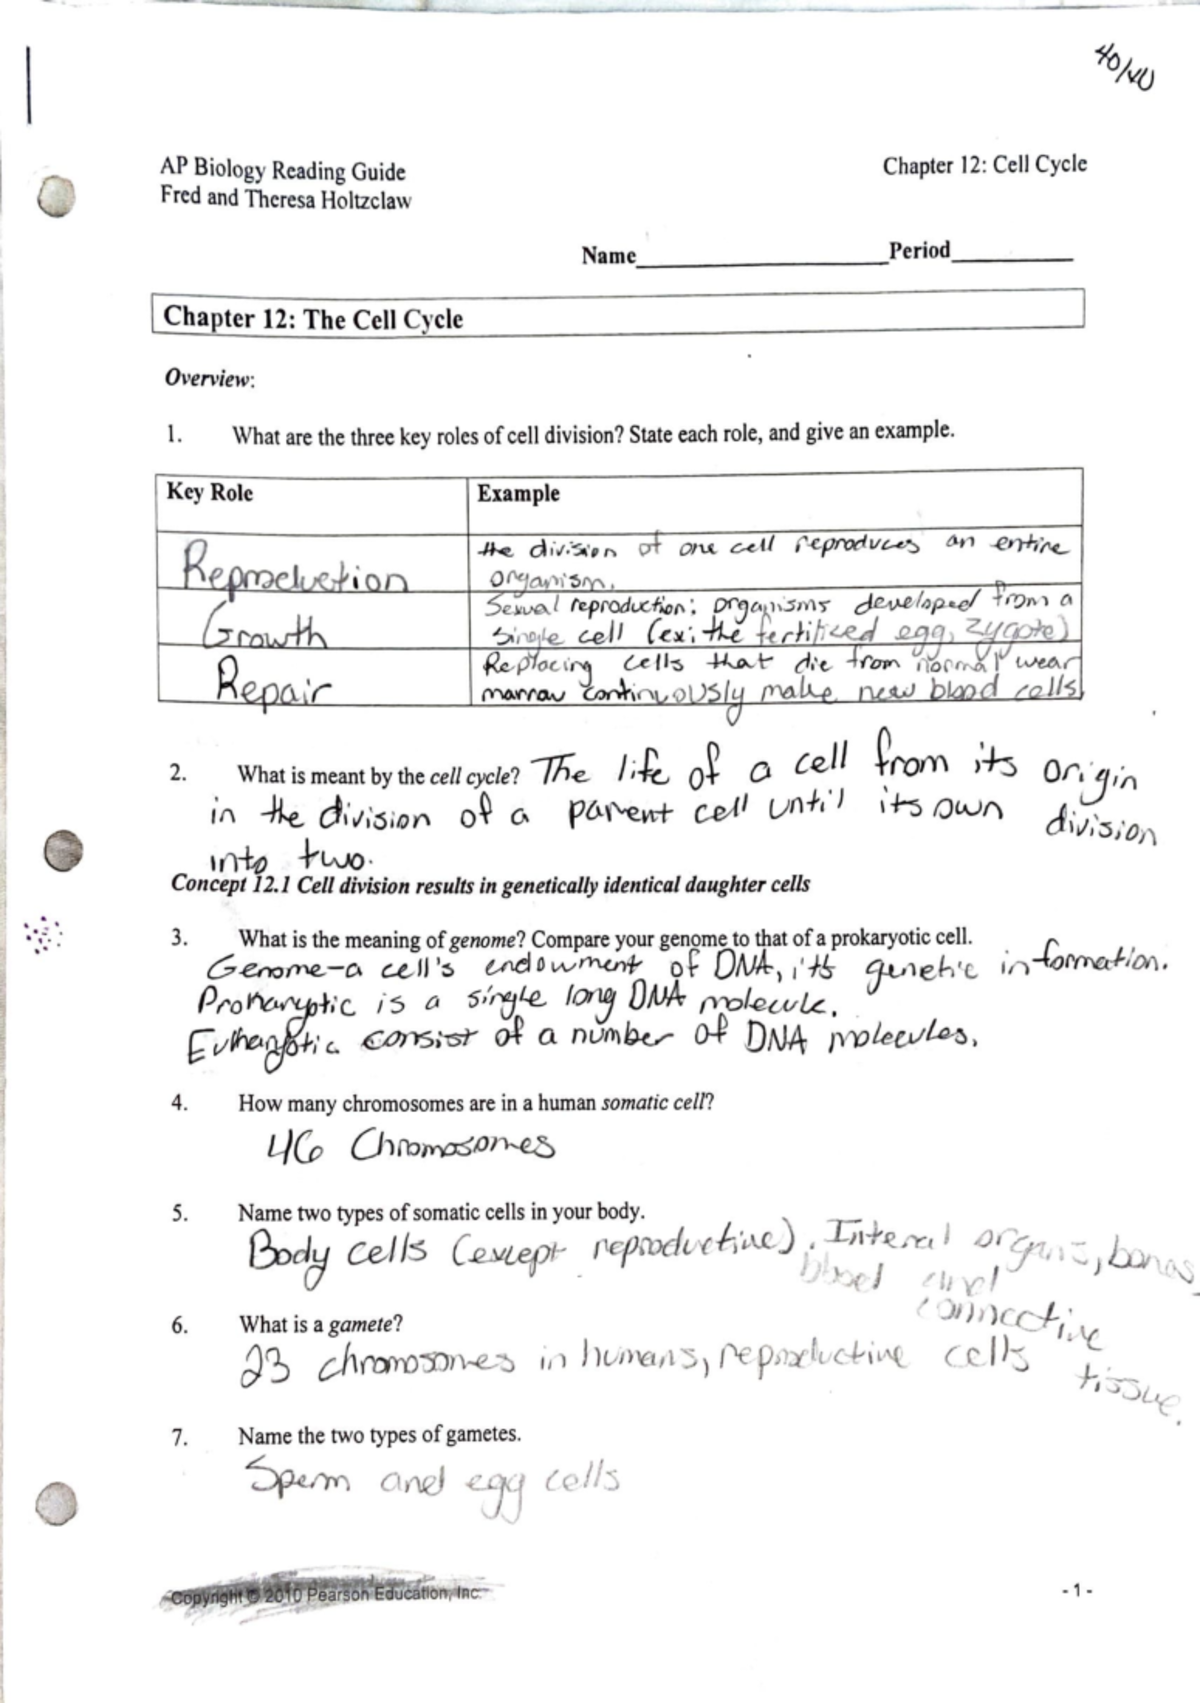 40/40
AP Biology Reading Guide
Chapter 12: Cell Cycle
Fred and Theresa Holtzclaw
Name____________________Period__________
Chapter 12: The Cell Cycle
Overview:
1. What are the three key roles of cell division? State each role, and give an example.
Key Role Example
Reproduction the division of one cell reproduces an entire
organism.
Growth Sexual reproduction; organisms developed from a
single cell (ex: the fertilized egg, zygote)
Repair Replacing cells that die from normal wear
marrow continuously make new blood cells
2. What is meant by the cell cycle? The life of a cell from its origin
in the division of a parent cell until its own division
into two.
Concept 12.1 Cell division results in genetically identical daughter cells
3. What is the meaning of genome? Compare your genome to that of a prokaryotic cell.
Genome-a cell's endowment of DNA, it's genetic information.
Prokaryotic is a single long DNA molecule.
Eukaryotic consist of a number of DNA molecules.
4. How many chromosomes are in a human somatic cell?
46 Chromosomes
5. Name two types of somatic cells in your body.
Body cells (except reproductive). Interal organs, bones,
blood and
connective
tissue.
6. What is a gamete?
23 chromosomes in humans, reproductive cells
7. Name the two types of gametes.
Sperm and egg cells
Copyright © 2010 Pearson Education, Inc.
- 1 -